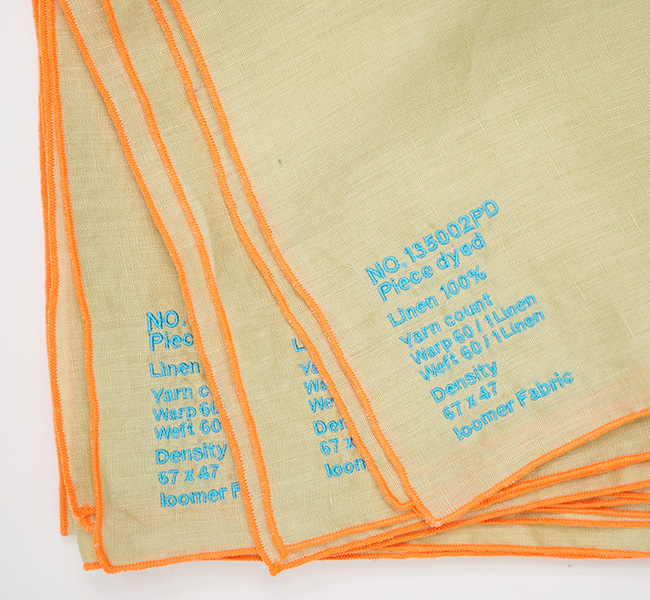 NO.135002PD
Piece dyed
Linen 100%
Yarn count
Warp 60 / 1Linen
Weft 60 / 1Linen
Density
67 x 47
loomer Fabric
NO.
Piec
Linen
Yarn c
Warp 60
Weft 60
Density
67 x 47
loomer F
L
Ya
Wa
We
Der
67 x
loom